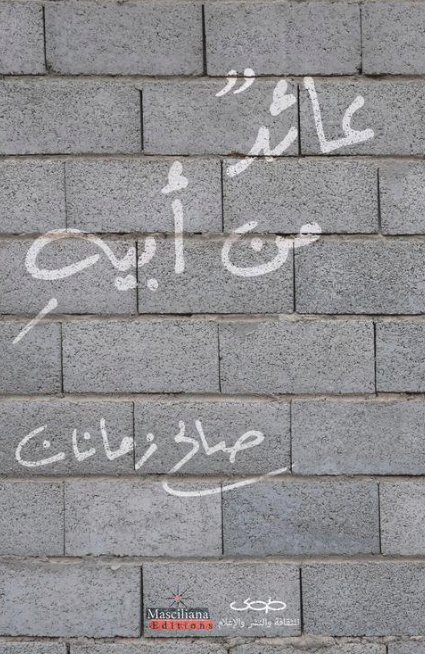 عائدٌ
من أبيهِ
صالح زمانان
Masciliana
Editions
ضوضى
للثقافة والنشر والإعلام